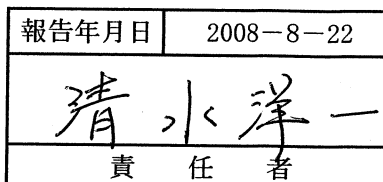 報告年月日 2008-8-22
清水洋一
責任者